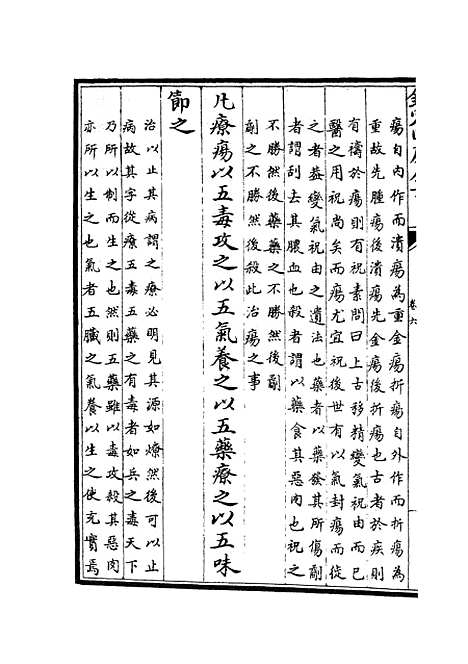 卷六
瘍自内作而潰瘍為重金瘍折瘍自外作而潰瘍為
重故先腫瘍後潰瘍先金瘍後折瘍也古者於疾則
有禱於瘍則有祝素問曰上古移精變氣祝由而已
醫之用祝尚矣而瘍尤宜祝後世有以氣封瘍而徙
之者葢變氣祝由之遺法也藥者以藥發其所傷劀
者謂刮去其膿血也殺者謂以藥食其惡肉也祝之
不勝然後藥藥之不勝然後劀
劀之不勝然後殺此治瘍之事
凡療瘍以五毒攻之以五氣養之以五藥療之以五味
節之
治以止其病謂之療必明見其源如燎然後可以止
病故其字從療五毒五藥之有毒者如兵之毒天下
乃所以制而生之也然則五藥雖以毒攻殺其惡肉
亦所以生之也氣者五臟之氣養以生之使充實焉